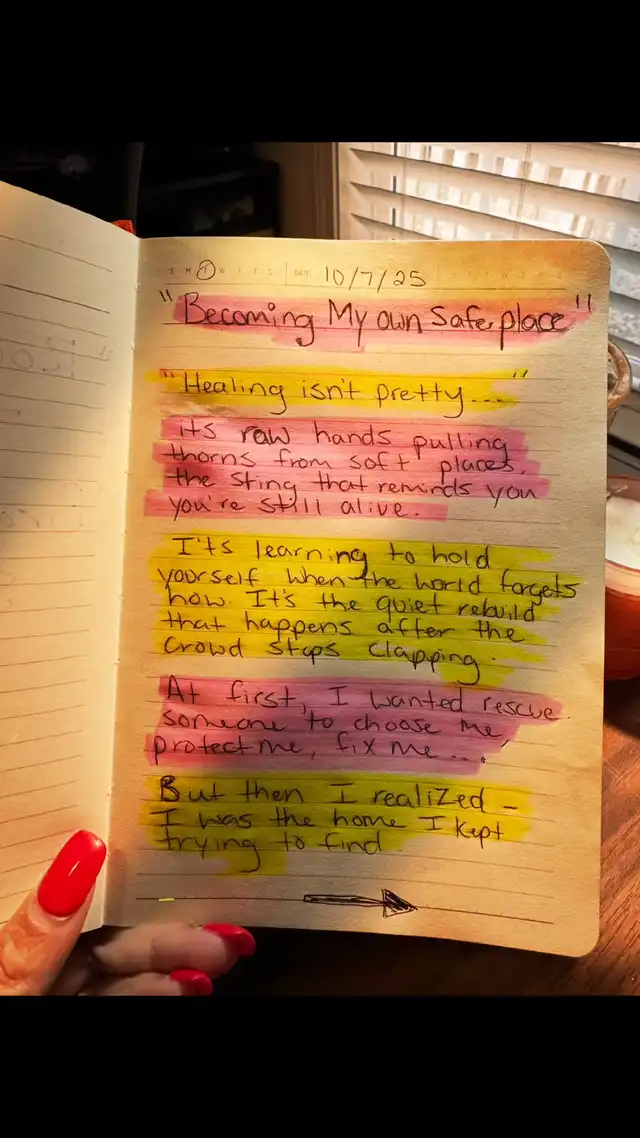 S M T W T F S DATE 10/7/25
"Becoming My own Safe place"
"Healing isn't pretty..."
its raw hands pulling
thorns from soft places.
the sting that reminds you
you're still alive.
It's learning to hold
yourself when the world forgets
how. It's the quiet rebuild
that happens after the
crowd stops clapping.
At first, I wanted rescue.
someone to choose me,
protect me, fix me....
But then I realized -
I was the home I kept
trying to find